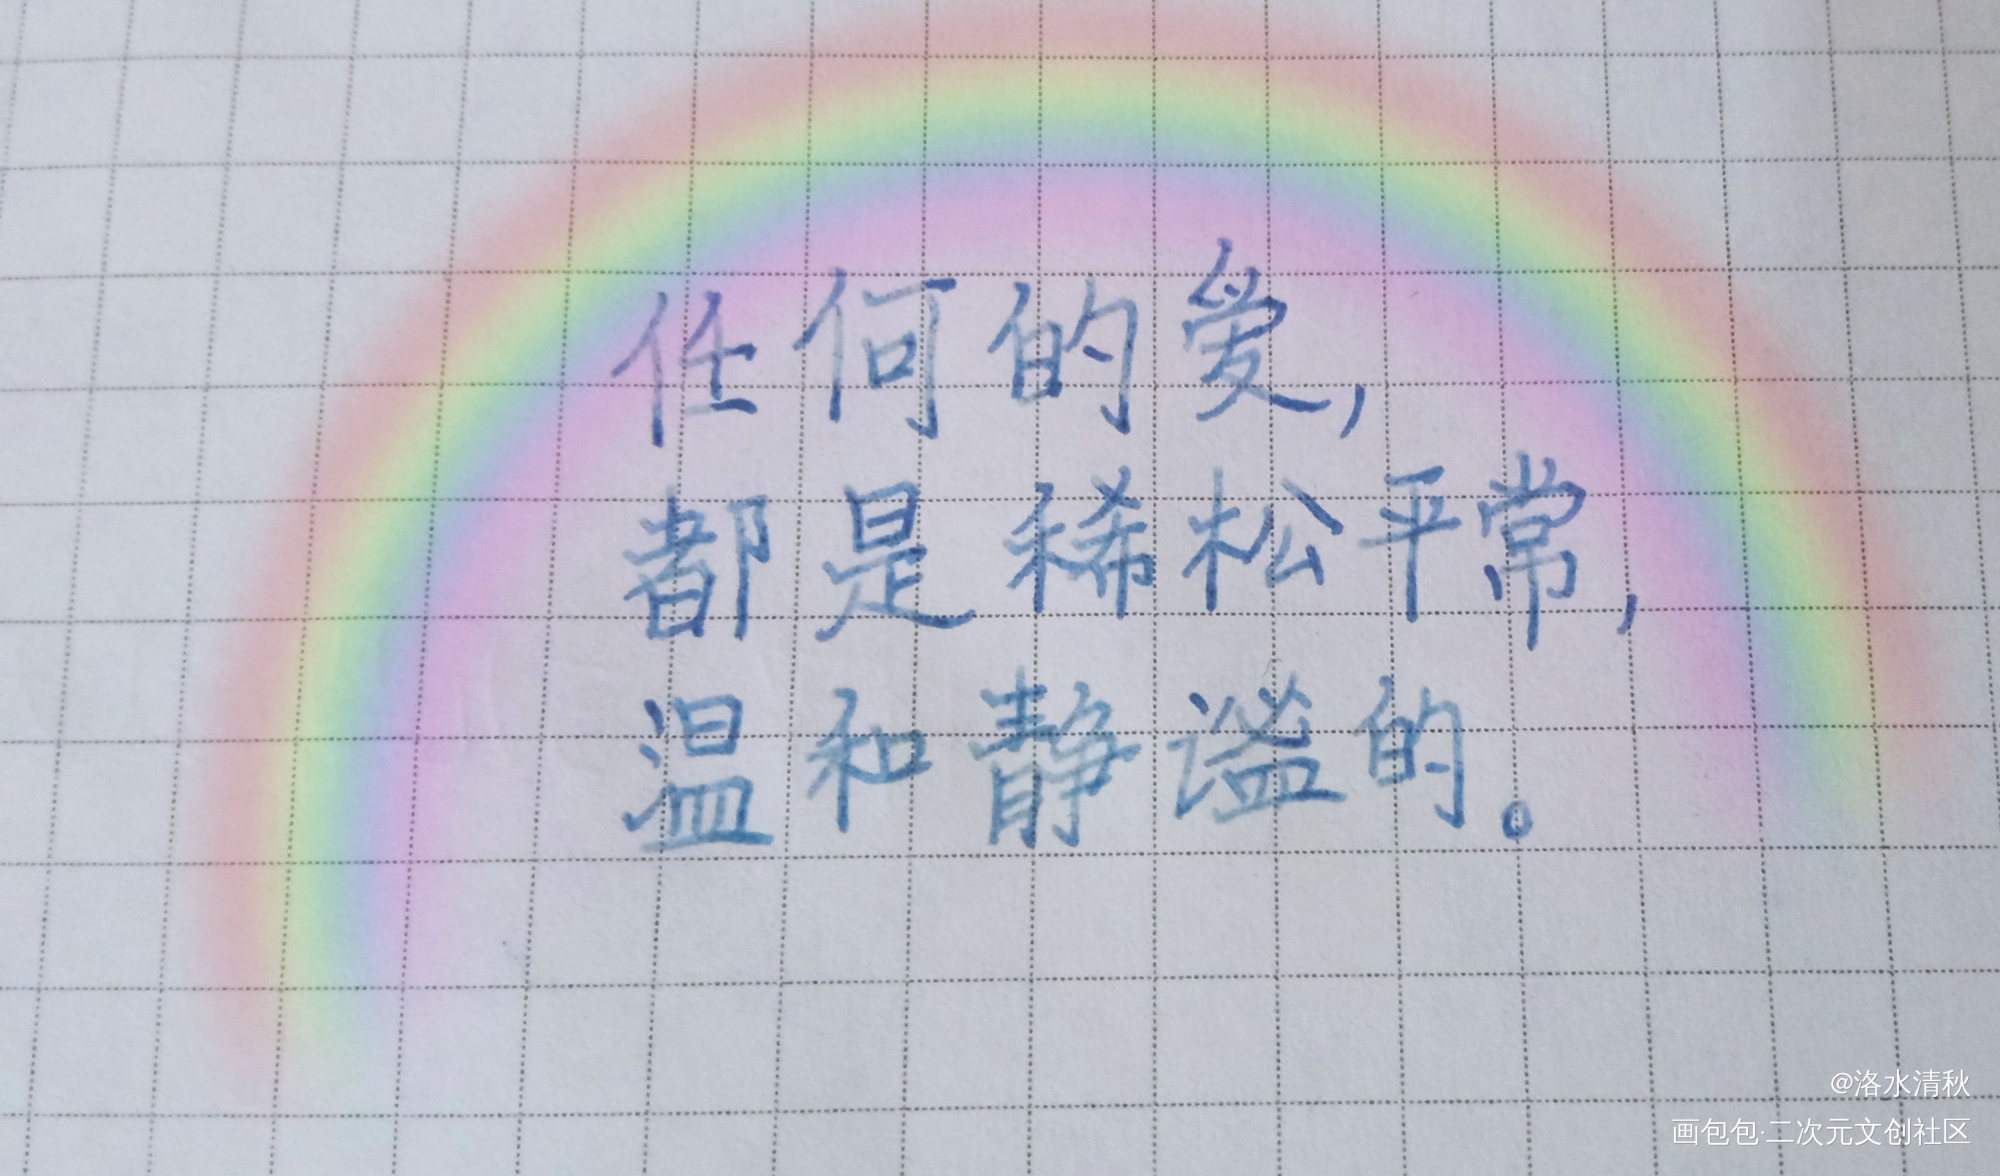 任何的爱,
都是稀松平常,
温和静谧的。
@洛水清秋
画包包·二次元文创社区